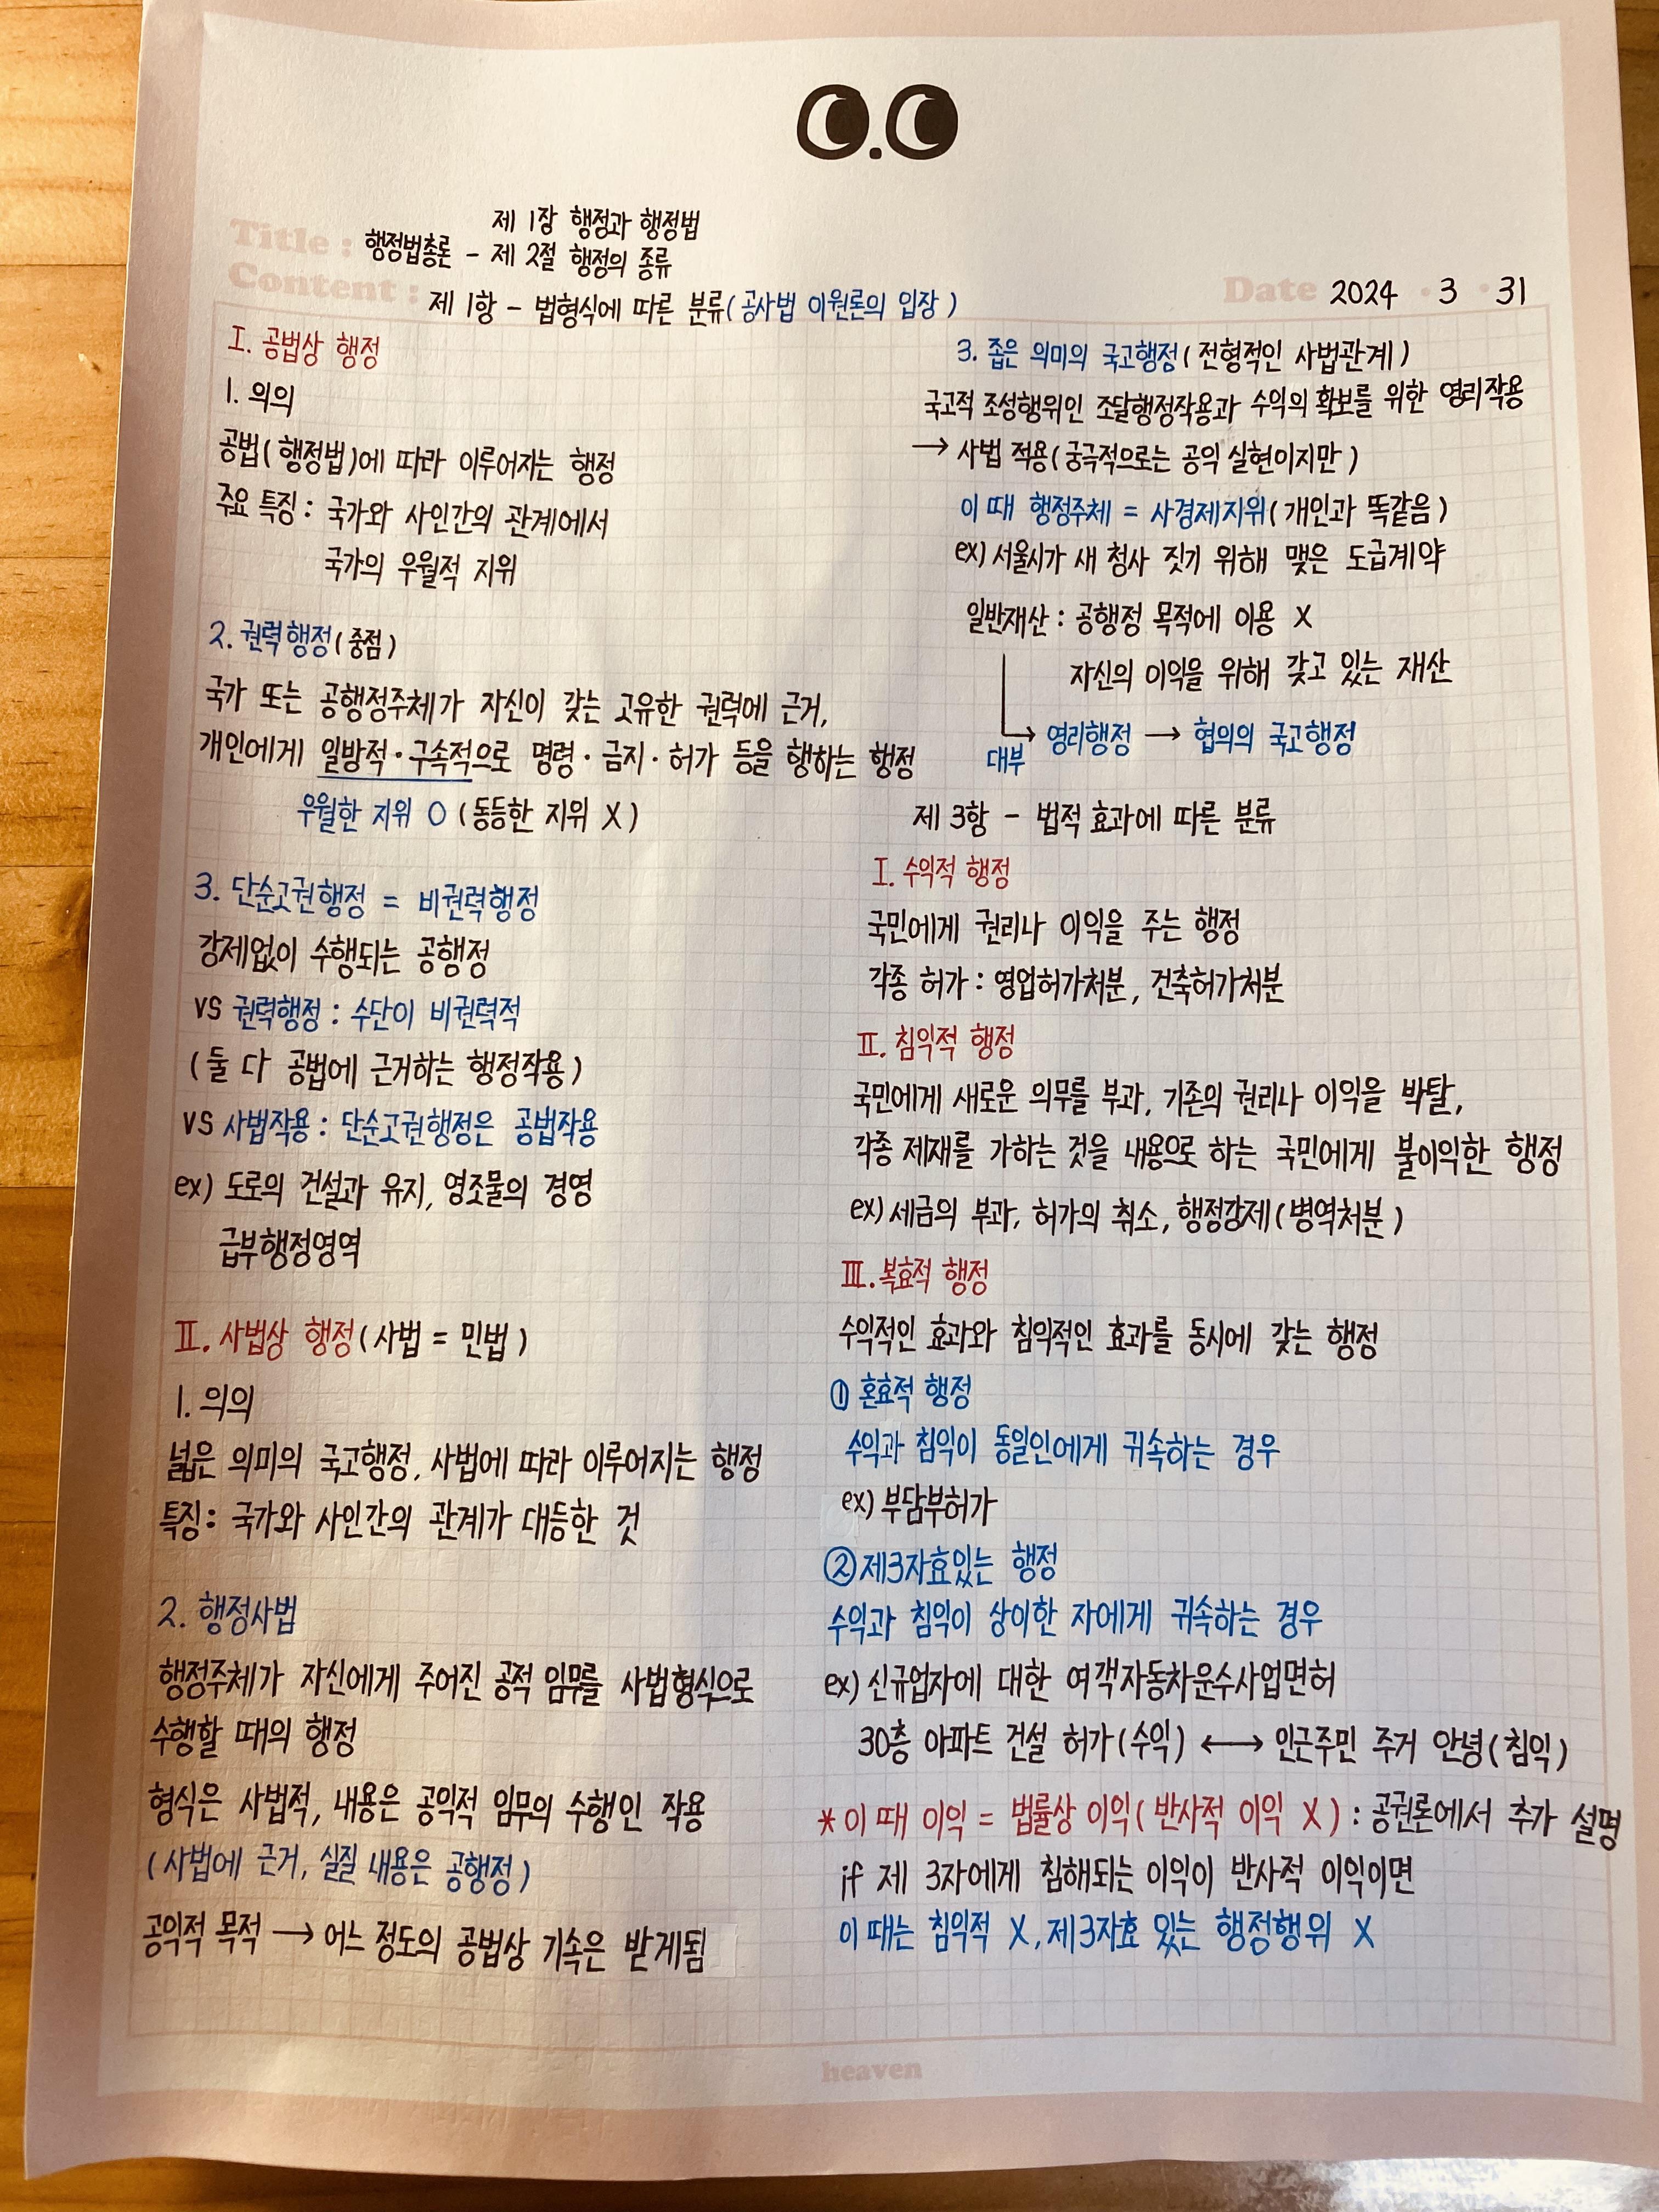 제 1장 행정과 행정법
Title : 행정법총론 - 제 2절 행정의 종류
Content : 제 1항 - 법형식에 따른 분류(공사법 이원론의 입장)
Date 2024 · 3 · 31
I. 공법상 행정
1. 의의
공법(행정법)에 따라 이루어지는 행정
주요 특징 : 국가와 사인간의 관계에서
국가의 우월적 지위
2. 권력행정(중점)
국가 또는 공행정주체가 자신이 갖는 고유한 권력에 근거,
개인에게 일방적·구속적으로 명령·금지·허가 등을 행하는 행정
우월한 지위 O (동등한 지위 X)
3. 단순고권행정 = 비권력행정
강제없이 수행되는 공행정
vs 권력행정 : 수단이 비권력적
(둘 다 공법에 근거하는 행정작용)
vs 사법작용 : 단순고권행정은 공법작용
ex) 도로의 건설과 유지, 영조물의 경영
급부행정영역
II. 사법상 행정(사법 = 민법)
1. 의의
넓은 의미의 국고행정, 사법에 따라 이루어지는 행정
특징 : 국가와 사인간의 관계가 대등한 것
2. 행정사법
행정주체가 자신에게 주어진 공적 임무를 사법형식으로
수행할 때의 행정
형식은 사법적, 내용은 공익적 임무의 수행인 작용
(사법에 근거, 실질 내용은 공행정)
공익적 목적 → 어느 정도의 공법상 기속은 받게됨
3. 좁은 의미의 국고행정(전형적인 사법관계)
국고적 조성행위인 조달행정작용과 수익의 확보를 위한 영리작용
→ 사법 적용(궁극적으로는 공익 실현이지만)
이 때 행정주체 = 사경제지위(개인과 똑같음)
ex) 서울시가 새 청사 짓기 위해 맺은 도급계약
일반재산 : 공행정 목적에 이용 X
자신의 이익을 위해 갖고 있는 재산
대부 → 영리행정 → 협의의 국고행정
제 3항 - 법적 효과에 따른 분류
I. 수익적 행정
국민에게 권리나 이익을 주는 행정
각종 허가 : 영업허가처분, 건축허가처분
II. 침익적 행정
국민에게 새로운 의무를 부과, 기존의 권리나 이익을 박탈,
각종 제재를 가하는 것을 내용으로 하는 국민에게 불이익한 행정
ex) 세금의 부과, 허가의 취소, 행정강제(병역처분)
III. 복효적 행정
수익적인 효과와 침익적인 효과를 동시에 갖는 행정
① 혼효적 행정
수익과 침익이 동일인에게 귀속하는 경우
ex) 부담부허가
② 제3자효있는 행정
수익과 침익이 상이한 자에게 귀속하는 경우
ex) 신규업자에 대한 여객자동차운수사업면허
30층 아파트 건설 허가(수익) ↔ 인근주민 주거 안녕(침익)
* 이 때 이익 = 법률상 이익(반사적 이익 X) : 공권론에서 추가 설명
if 제 3자에게 침해되는 이익이 반사적 이익이면
이 때는 침익적 X, 제3자효 있는 행정행위 X
heaven